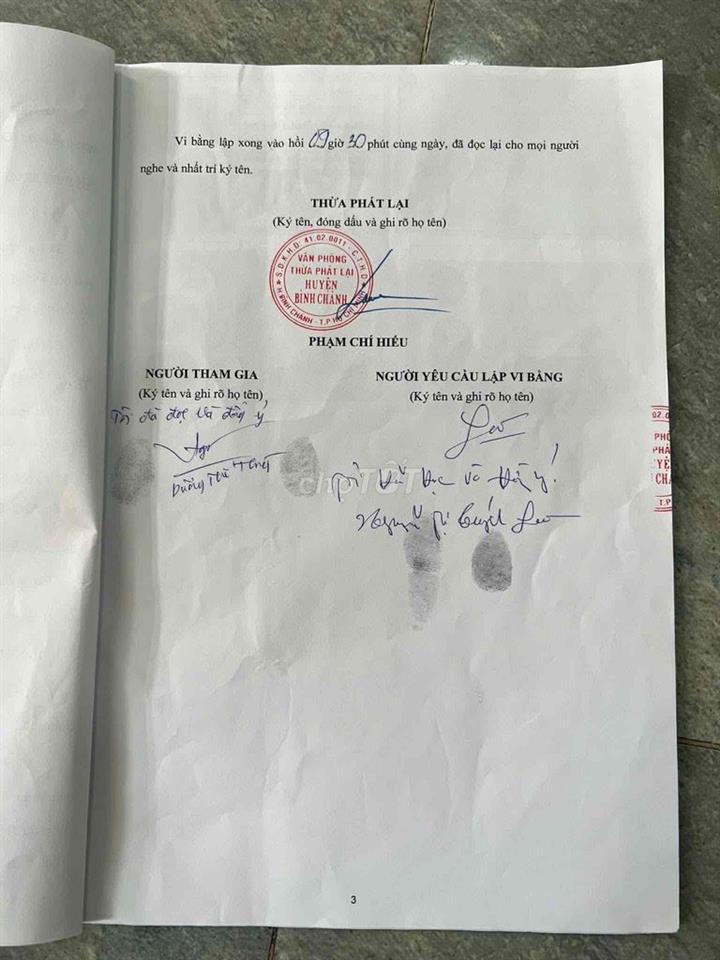 Vi bằng lập xong vào hồi 09 giờ 30 phút cùng ngày, đã đọc lại cho mọi người
nghe và nhất trí ký tên.
THỪA PHÁT LẠI
(Ký tên, đóng dấu và ghi rõ họ tên)
S.Đ.K.H.Đ: 41.02.0011 - C.T.H.D
VĂN PHÒNG
THỪA PHÁT LẠI
HUYỆN
BÌNH CHÁNH
H. BÌNH CHÁNH - T.P HỒ CHÍ MINH
PHẠM CHÍ HIẾU
NGƯỜI THAM GIA
(Ký tên và ghi rõ họ tên)
Tôi đã đọc và đồng ý
Dương Thị
NGƯỜI YÊU CẦU LẬP VI BẰNG
(Ký tên và ghi rõ họ tên)
Tôi đã đọc và đồng ý!
Nguyễn Thị
chợTỐT
02.0
PHÒ
PHÁ
YỆ
CHÁ
T.P
3